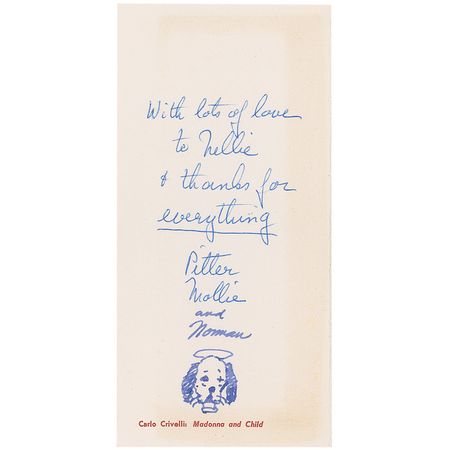 With lots of love
to Nellie
& thanks for
everything
Pitter
Mollie
and
Norman
Carlo Crivelli: Madonna and Child